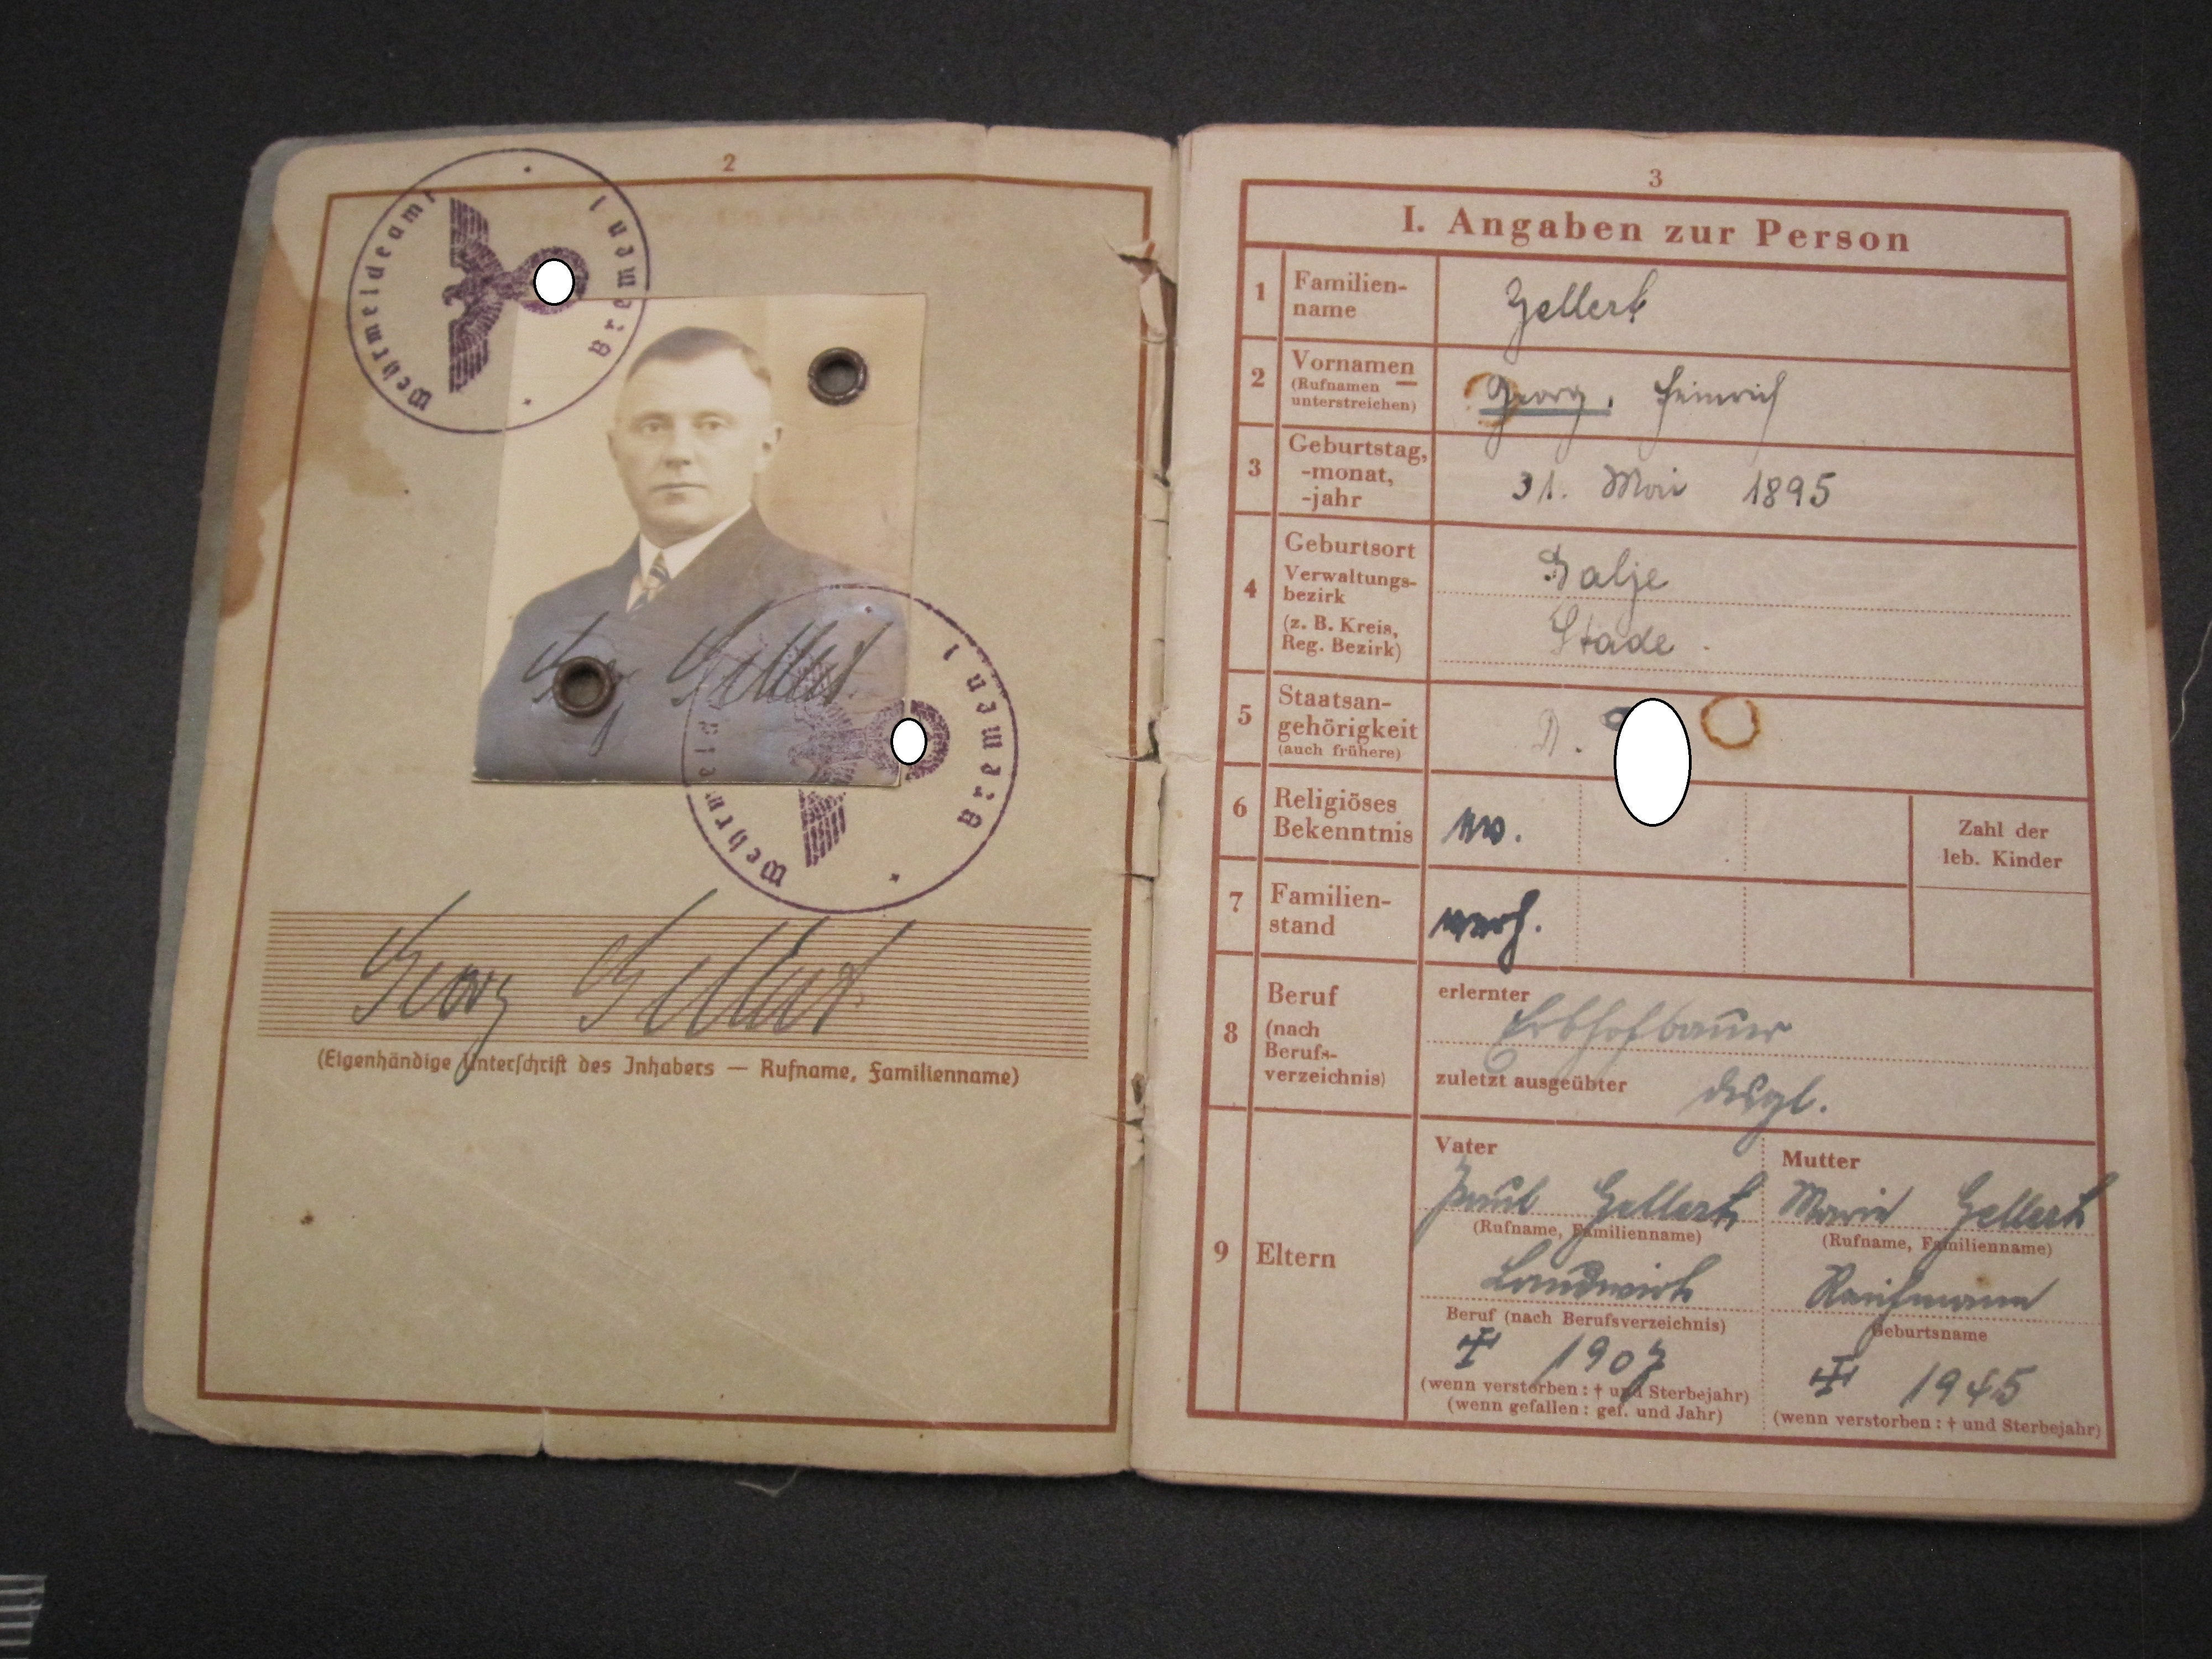 2
Wehrmeldeamt Bremen I
Georg Gellert
Wehrmeld Bremen I
Georg Gellert
(Eigenhändige Unterschrift des Inhabers — Rufname, Familienname)
3
I. Angaben zur Person
1 Familien-
name
Gellert
2 Vornamen
(Rufnamen
unterstreichen)
Georg, Heinrich
3 Geburtstag,
-monat,
-jahr
31. Mai 1895
4 Geburtsort
Verwaltungs-
bezirk
(z. B. Kreis,
Reg. Bezirk)
Balje
Stade
5 Staatsan-
gehörigkeit
(auch frühere)
D.
6 Religiöses
Bekenntnis
ev.
Zahl der
leb. Kinder
7 Familien-
stand
verh.
8 Beruf
(nach
Berufs-
verzeichnis)
erlernter
Erbhofbauer
zuletzt ausgeübter
desgl.
9 Eltern
Vater
Paul Gellert
(Rufname, Familienname)
Landwirt
Beruf (nach Berufsverzeichnis)
† 1907
(wenn verstorben: † und Sterbejahr)
(wenn gefallen: gef. und Jahr)
Mutter
Marie Gellert
(Rufname, Familienname)
Geburtsname
† 1945
(wenn verstorben: † und Sterbejahr)